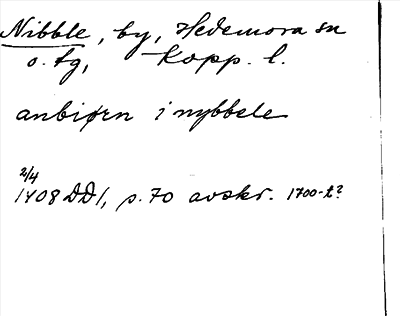 Nibble, by, Hedemora sn
o. tg, Kopp. l.
anbiørn i nybbele
2/4
1408 DD1, s. 70 avskr. 1700-t?